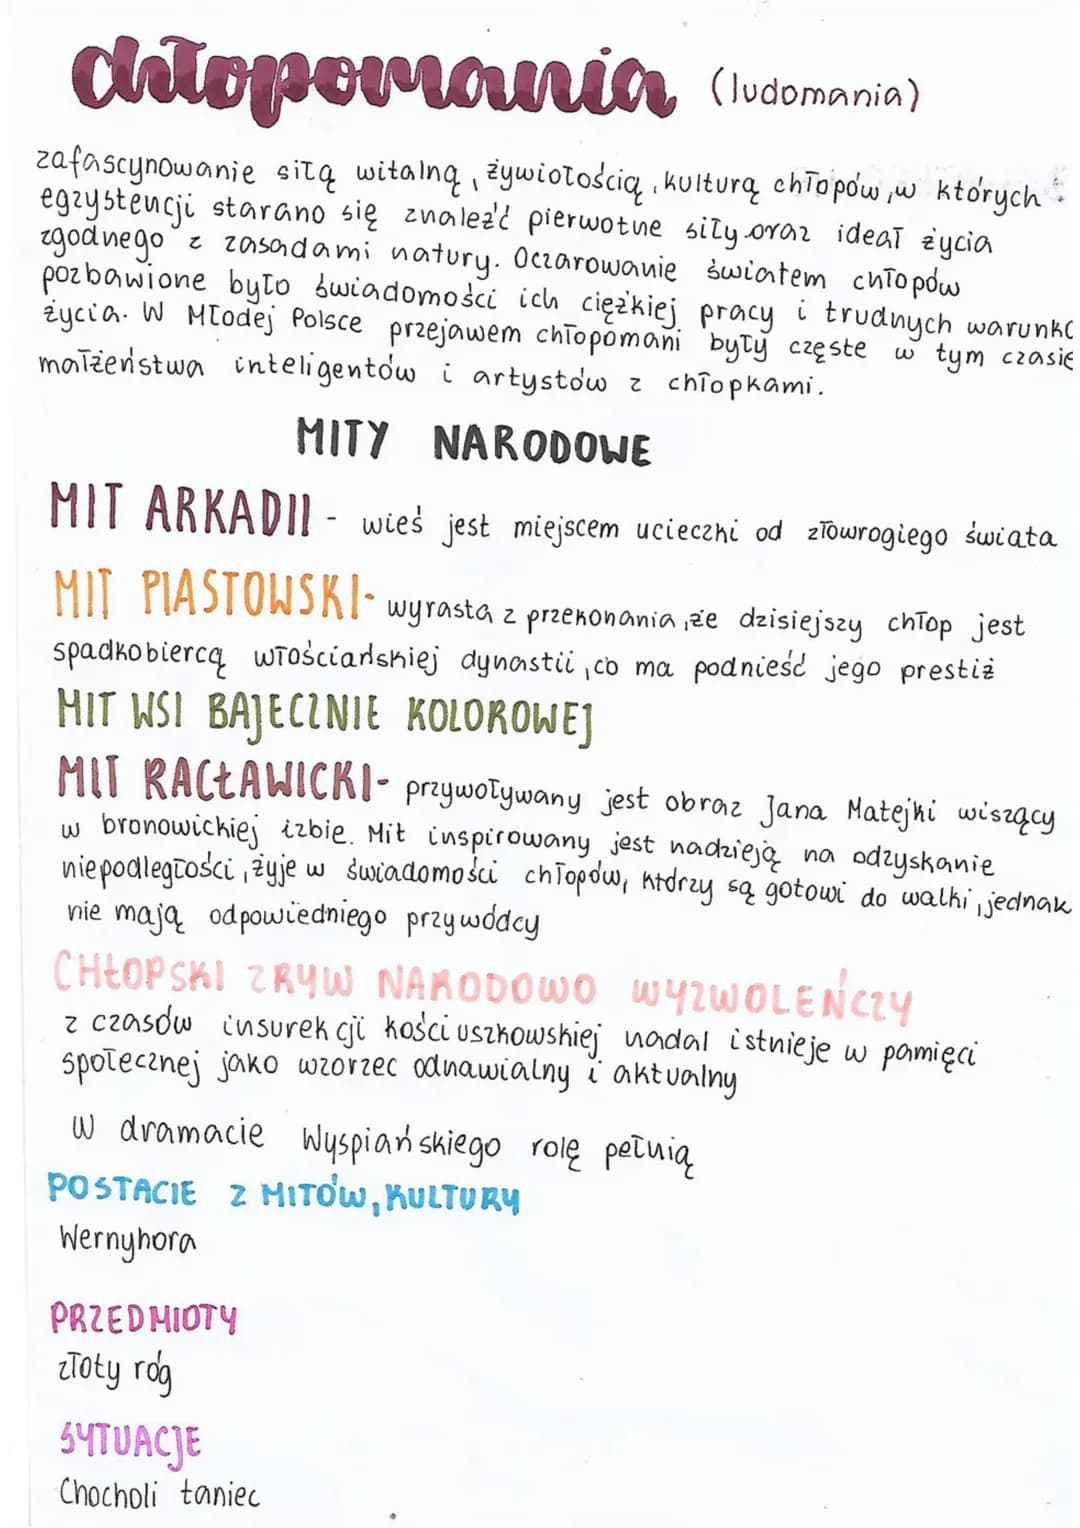 chłopomania (ludomania)
zafascynowanie siłą witalną, żywiołością, kulturą chłopów, w których
egzystencji starano się znaleźć pierwotne siły oraz ideał życia
zgodnego z zasadami natury. Oczarowanie światem chłopów
pozbawione było świadomości ich ciężkiej pracy i trudnych warunkó
życia. W Młodej Polsce przejawem chłopomani były częste w tym czasie
małżeństwa inteligentów i artystów z chłopkami.
MITY NARODOWE
MIT ARKADII - wieś jest miejscem ucieczki od złowrogiego świata
MIT PIASTOWSKI- wyrasta z przekonania, że dzisiejszy chłop jest
spadkobiercą włościańskiej dynastii, co ma podnieść jego prestiż
MIT WSI BAJECZNIE KOLOROWEJ
MIT RACŁAWICKI- przywoływany jest obraz Jana Matejki wiszący
w bronowickiej izbie. Mit inspirowany jest nadzieją na odzyskanie
niepodległości, żyje w świadomości chłopów, którzy są gotowi do walki, jednak
nie mają odpowiedniego przywódcy
CHŁOPSKI ZRYW NARODOWO WYZWOLEŃCZY
z czasów insurekcji kościuszkowskiej nadal istnieje w pamięci
społecznej jako wzorzec odnawialny i aktualny
W dramacie Wyspiańskiego rolę pełnią
POSTACIE Z MITÓW, KULTURY
Wernyhora
PRZEDMIOTY
złoty róg
SYTUACJE
Chocholi taniec